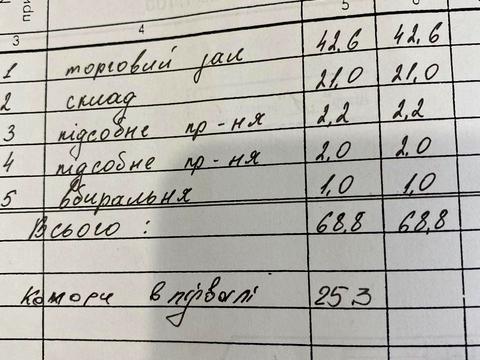 3 4 5 6
1 торговий зал 42,6 42,6
2 склад 21,0 21,0
3 підсобне пр-ня 2,2 2,2
4 підсобне пр-ня 2,0 2,0
5 вбиральня 1,0 1,0
Всього : 68,8 68,8
Комори в підвалі 25,3